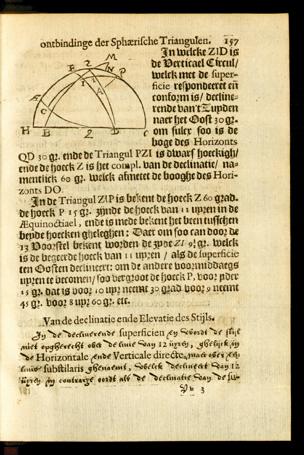 ontbindinge der Sphærische Triangulen. 157
In welcke ZID is
de Verticael Circul/
welck met de super-
ficie respondeert en
conform is/ decline-
rende van't Zuyden
naer het Oost 30 gr.
om sulcx soo is de
boge des Horizonts
QD 30 gr. ende de Triangul PZI is dwars hoeckigh/
ende de hoeck Z is het compl. van de declinatie/ na-
mentlick 60 gr. welck afmeet de booghe des Hori-
zonts DO.
In de Triangul ZIP is bekent de hoeck Z 60 grad.
de hoeck P 15 gr. zijnde de hoeck van 11 uyren in de
Æquinoctiael, ende is mede bekent het been tusschen
beyde hoecken gheleghen: Daer om soo can door de
13 Voorstel bekent worden de zyde ZI gr. welck
is de begeerde hoeck van 11 uyren / als de superficie
ten Oosten declineert: om de andere voormiddaegs
uyren te bekomen/ soo vergroot de hoeck P. voor yder
15 gr. dat is voor 10 uyr neemt 30 grad voor 9 neemt
45 gr. voor 8 uyr 60 gr. etc.
Van de declinatie ende Elevatie des Stijls.
In de declinerende superficien en wordt de stijl
niet opgherecht op de linie van 12 uyren, ghelijck in
de Horizontale ende Verticale directe, maer op een
linie substilaris ghenaemt, welck declineert van 12
uyren in contrarie oordt als de declinatie van de su-
H B Q D C
Æ Z M N P I